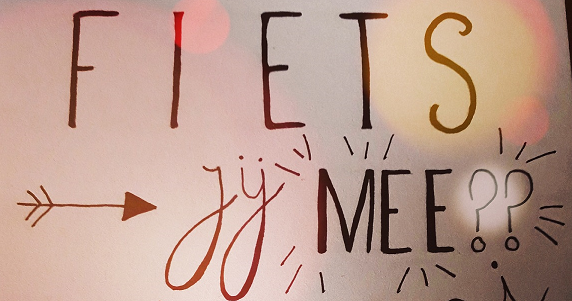 FIETS
jij MEE??